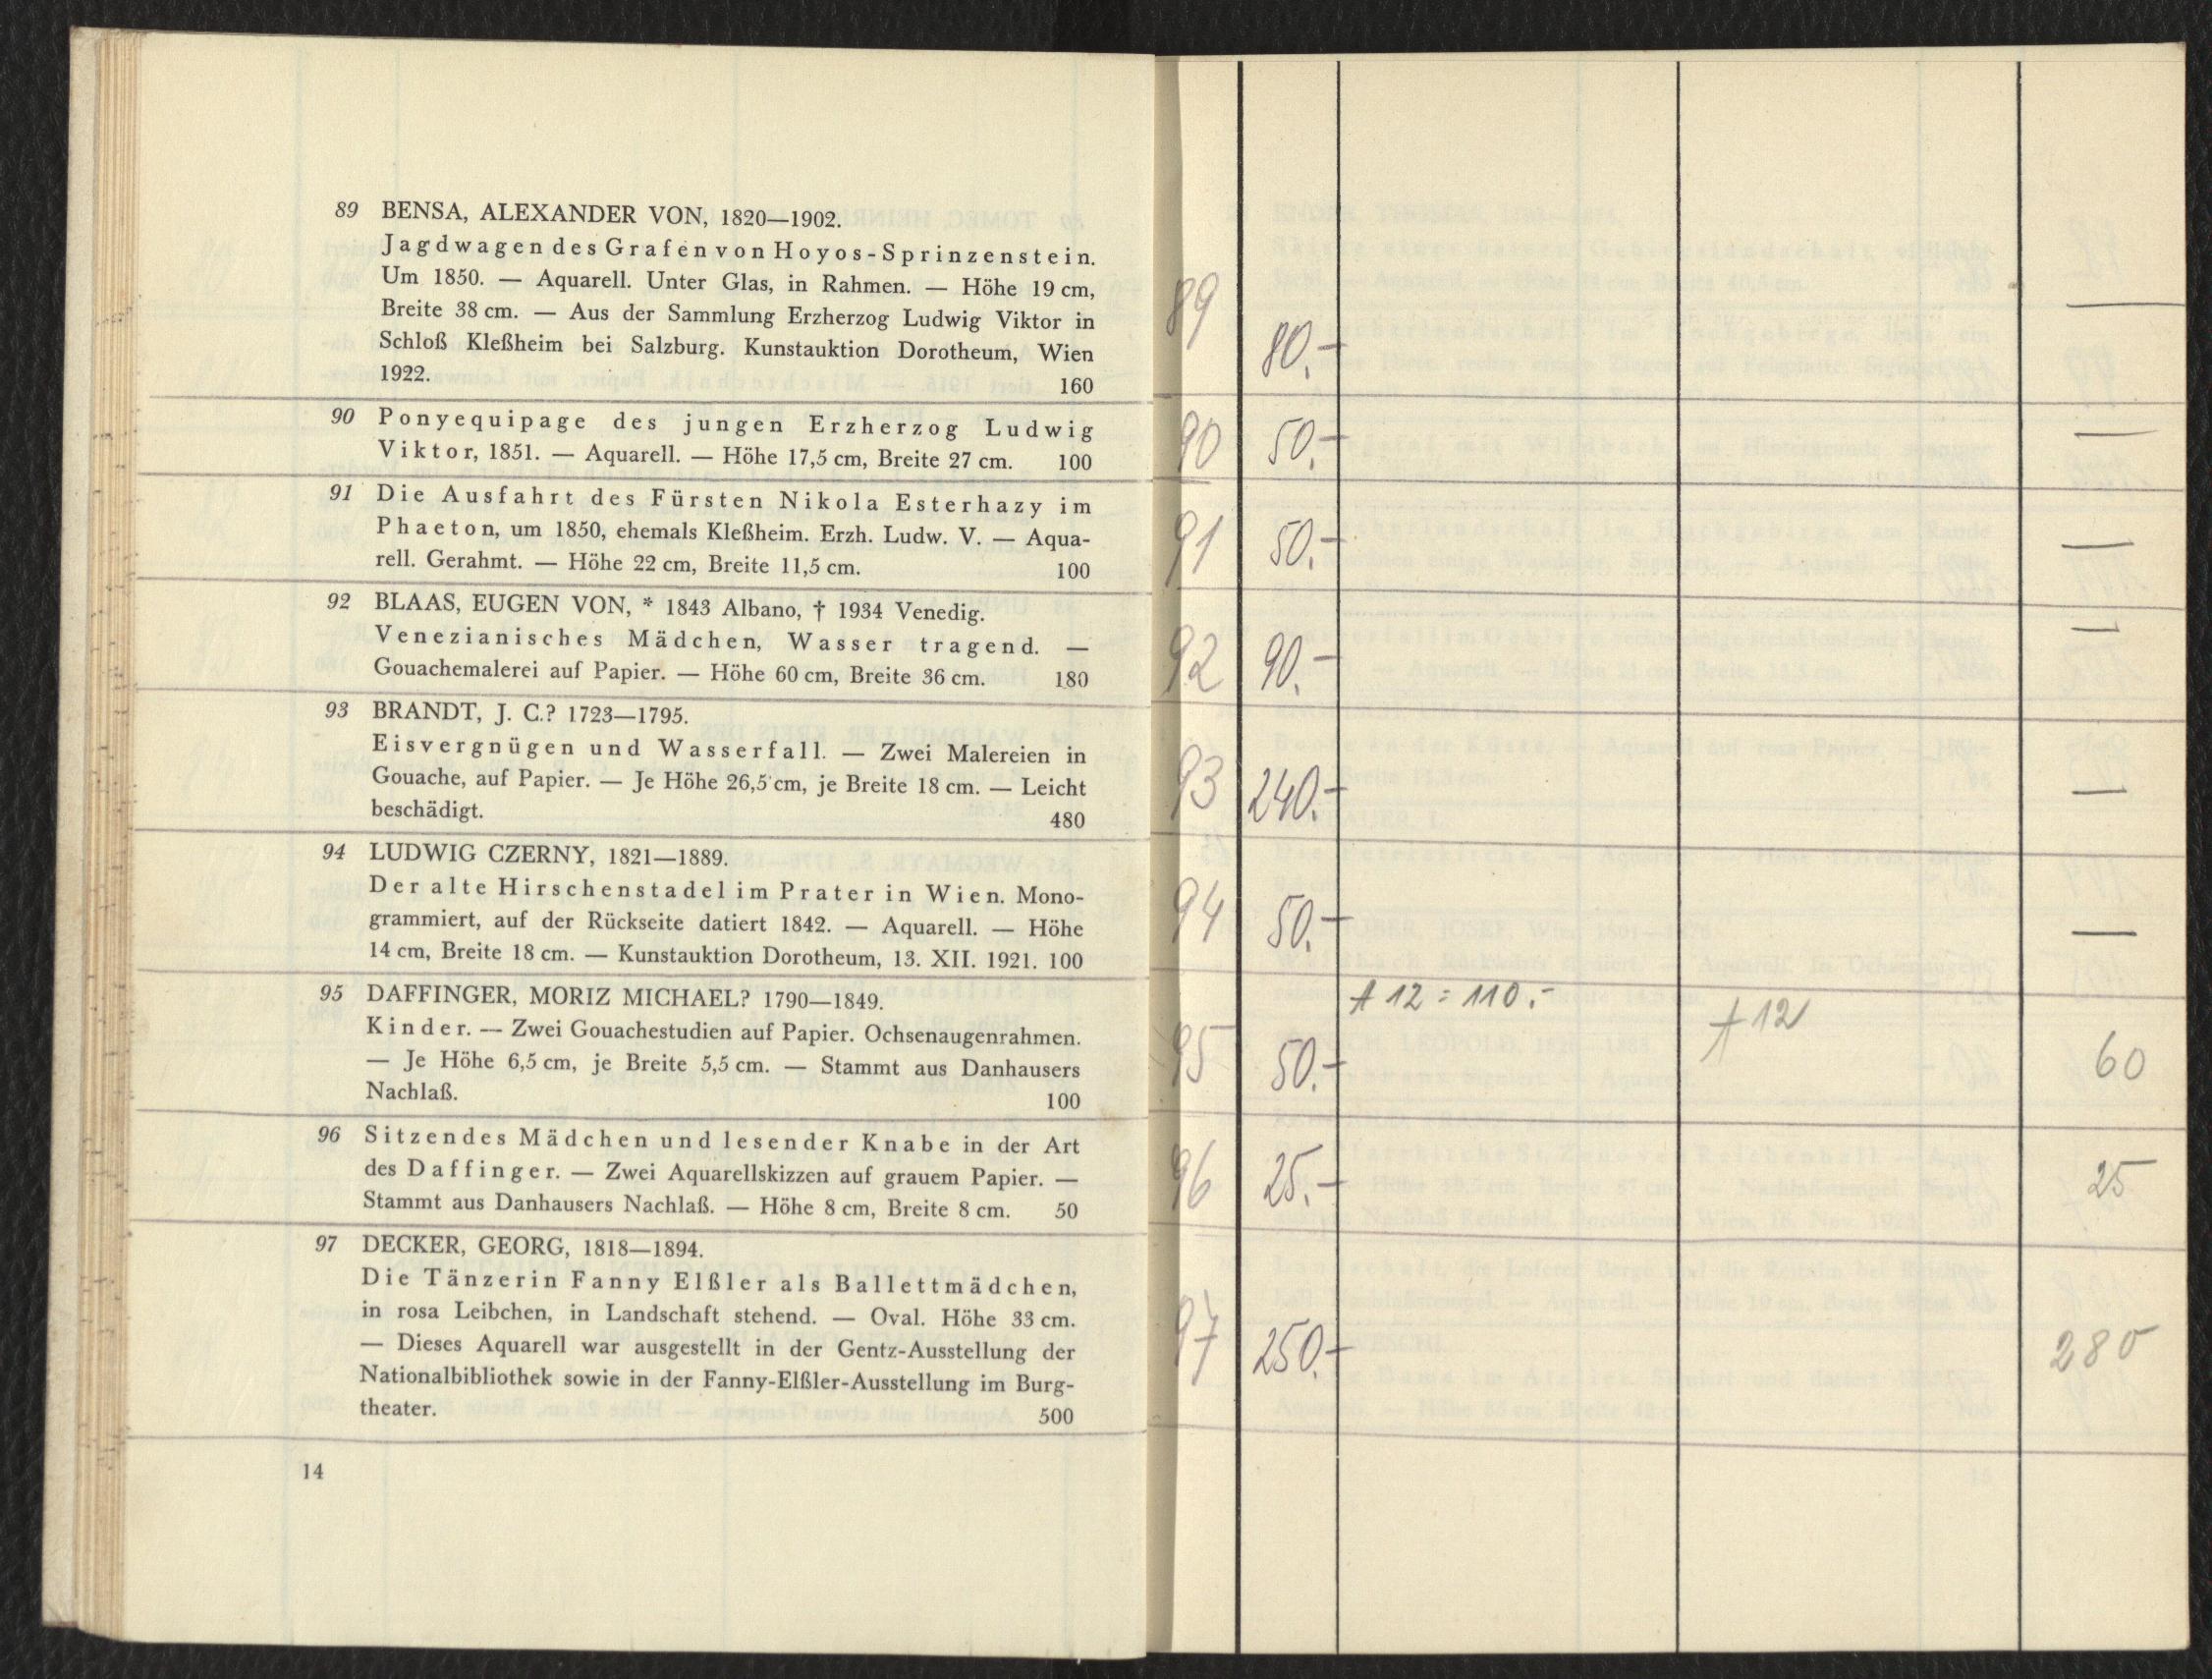 89 BENSA, ALEXANDER VON, 1820—1902.
Jagdwagen des Grafen von Hoyos-Sprinzenstein.
Um 1850. — Aquarell. Unter Glas, in Rahmen. — Höhe 19 cm,
Breite 38 cm. — Aus der Sammlung Erzherzog Ludwig Viktor in
Schloß Kleßheim bei Salzburg. Kunstauktion Dorotheum, Wien
1922. 160
90 Ponyequipage des jungen Erzherzog Ludwig
Viktor, 1851. — Aquarell. — Höhe 17,5 cm, Breite 27 cm. 100
91 Die Ausfahrt des Fürsten Nikola Esterhazy im
Phaeton, um 1850, ehemals Kleßheim. Erzh. Ludw. V. — Aqua-
rell. Gerahmt. — Höhe 22 cm, Breite 11,5 cm. 100
92 BLAAS, EUGEN VON, * 1843 Albano, † 1934 Venedig.
Venezianisches Mädchen, Wasser tragend. —
Gouachemalerei auf Papier. — Höhe 60 cm, Breite 36 cm. 180
93 BRANDT, J. C.? 1723—1795.
Eisvergnügen und Wasserfall. — Zwei Malereien in
Gouache, auf Papier. — Je Höhe 26,5 cm, je Breite 18 cm. — Leicht
beschädigt. 480
94 LUDWIG CZERNY, 1821—1889.
Der alte Hirschenstadel im Prater in Wien. Mono-
grammiert, auf der Rückseite datiert 1842. — Aquarell. — Höhe
14 cm, Breite 18 cm. — Kunstauktion Dorotheum, 13. XII. 1921. 100
95 DAFFINGER, MORIZ MICHAEL? 1790—1849.
Kinder. — Zwei Gouachestudien auf Papier. Ochsenaugenrahmen.
— Je Höhe 6,5 cm, je Breite 5,5 cm. — Stammt aus Danhausers
Nachlaß. 100
96 Sitzendes Mädchen und lesender Knabe in der Art
des Daffinger. — Zwei Aquarellskizzen auf grauem Papier. —
Stammt aus Danhausers Nachlaß. — Höhe 8 cm, Breite 8 cm. 50
97 DECKER, GEORG, 1818—1894.
Die Tänzerin Fanny Elßler als Ballettmädchen,
in rosa Leibchen, in Landschaft stehend. — Oval. Höhe 33 cm.
— Dieses Aquarell war ausgestellt in der Gentz-Ausstellung der
Nationalbibliothek sowie in der Fanny-Elßler-Ausstellung im Burg-
theater. 500
14
89 80.- —
90 50.- —
91 50.- —
92 90.- —
93 240.- —
94 50.- —
12 = 110.- 12
95 50.- 60
96 25.- 25
97 250.- 280